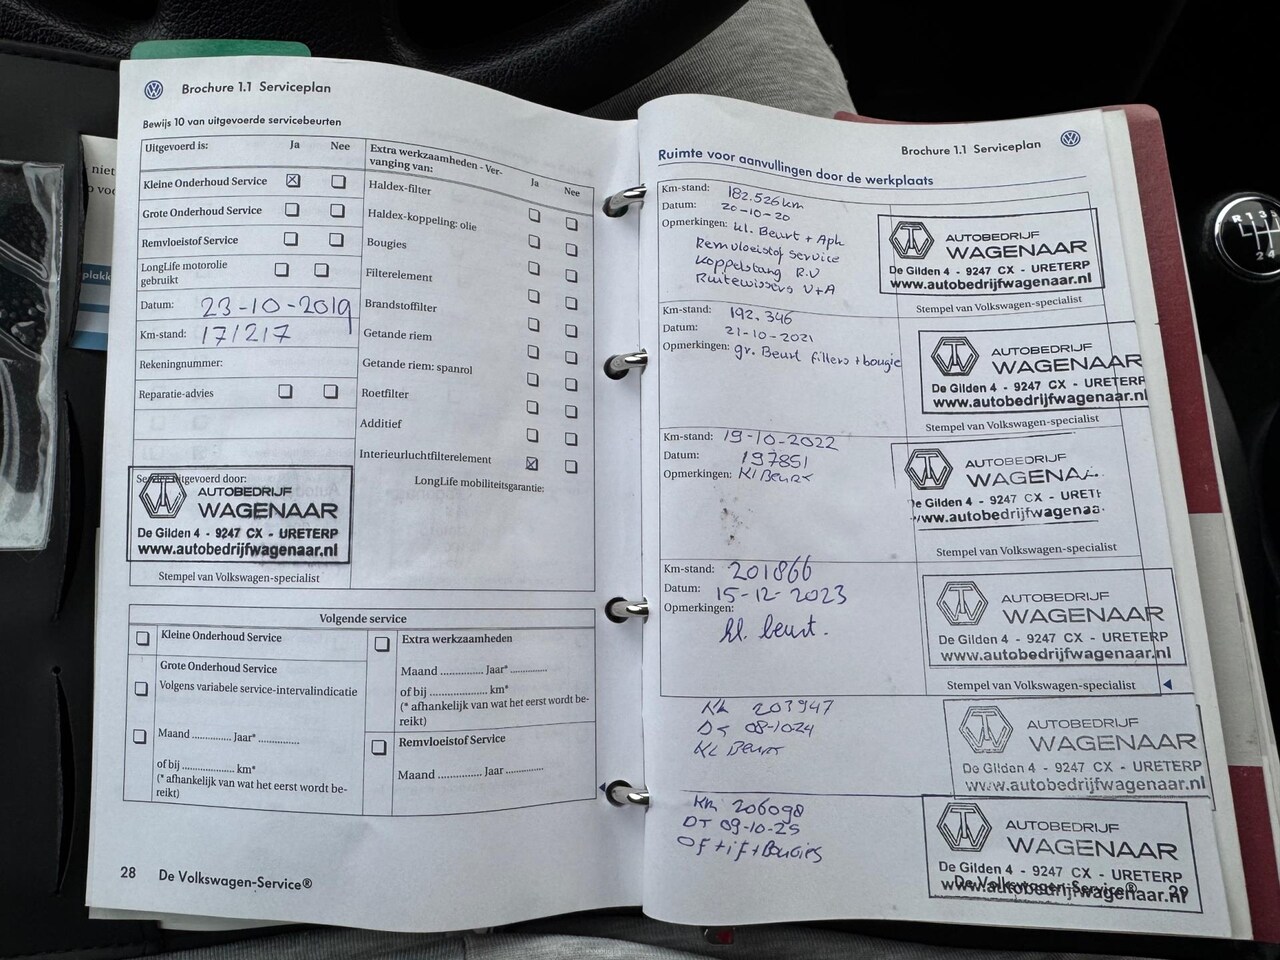 Brochure 1.1 Serviceplan
Bewijs 10 van uitgevoerde servicebeurten
Uitgevoerd is: Ja Nee
Kleine Onderhoud Service
Grote Onderhoud Service
Remvloeistof Service
LongLife motorolie
gebruikt
Datum: 23-10-2019
Km-stand: 171217
Rekeningnummer:
Reparatie-advies
Service uitgevoerd door:
AUTOBEDRIJF
WAGENAAR
De Gilden 4 - 9247 CX - URETERP
www.autobedrijfwagenaar.nl
Stempel van Volkswagen-specialist
Extra werkzaamheden - Ver-
vanging van: Ja Nee
Haldex-filter
Haldex-koppeling: olie
Bougies
Filterelement
Brandstoffilter
Getande riem
Getande riem: spanrol
Roetfilter
Additief
Interieurluchtfilterelement
LongLife mobiliteitsgarantie:
Volgende service
Kleine Onderhoud Service
Grote Onderhoud Service
Volgens variabele service-intervalindicatie
Maand .............. Jaar* ..............
of bij .................. km*
(* afhankelijk van wat het eerst wordt be-
reikt)
Extra werkzaamheden
Maand .............. Jaar* .............
of bij .................. km*
(* afhankelijk van wat het eerst wordt be-
reikt)
Remvloeistof Service
Maand .............. Jaar .............
28 De Volkswagen-Service®
Brochure 1.1 Serviceplan
Ruimte voor aanvullingen door de werkplaats
Km-stand: 182.526km
Datum: 20-10-20
Opmerkingen: kl. Beurt + Apk
Remvloeistof service
Koppelstang R.V
Ruitewissers V+A
AUTOBEDRIJF
WAGENAAR
De Gilden 4 - 9247 CX - URETERP
www.autobedrijfwagenaar.nl
Stempel van Volkswagen-specialist
Km-stand: 192.346
Datum: 21-10-2021
Opmerkingen: gr. Beurt filters + bougie
AUTOBEDRIJF
WAGENAAR
De Gilden 4 - 9247 CX - URETERP
www.autobedrijfwagenaar.nl
Stempel van Volkswagen-specialist
Km-stand: 19-10-2022
Datum: 197851
Opmerkingen: Kl Beurt
AUTOBEDRIJF
WAGENAA
De Gilden 4 - 9247 CX - URET
www.autobedrijfwagenaa
Stempel van Volkswagen-specialist
Km-stand: 201866
Datum: 15-12-2023
Opmerkingen:
kl. beurt.
AUTOBEDRIJF
WAGENAAR
De Gilden 4 - 9247 CX - URETERP
www.autobedrijfwagenaar.nl
Stempel van Volkswagen-specialist
KM 203947
DT 08-1024
KL Beurt
AUTOBEDRIJF
WAGENAAR
De Gilden 4 - 9247 CX - URETERP
www.autobedrijfwagenaar.nl
KM 206098
DT 09-10-25
Of+if+Bougies
AUTOBEDRIJF
WAGENAAR
De Gilden 4 - 9247 CX - URETERP
www.autobedrijfwagenaar.nl
De Volkswagen-Service® 29
niet
plakk
R 1 3 5
2 4